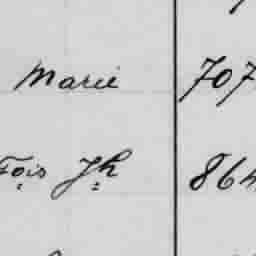 Marie 707
Fois Jh 864